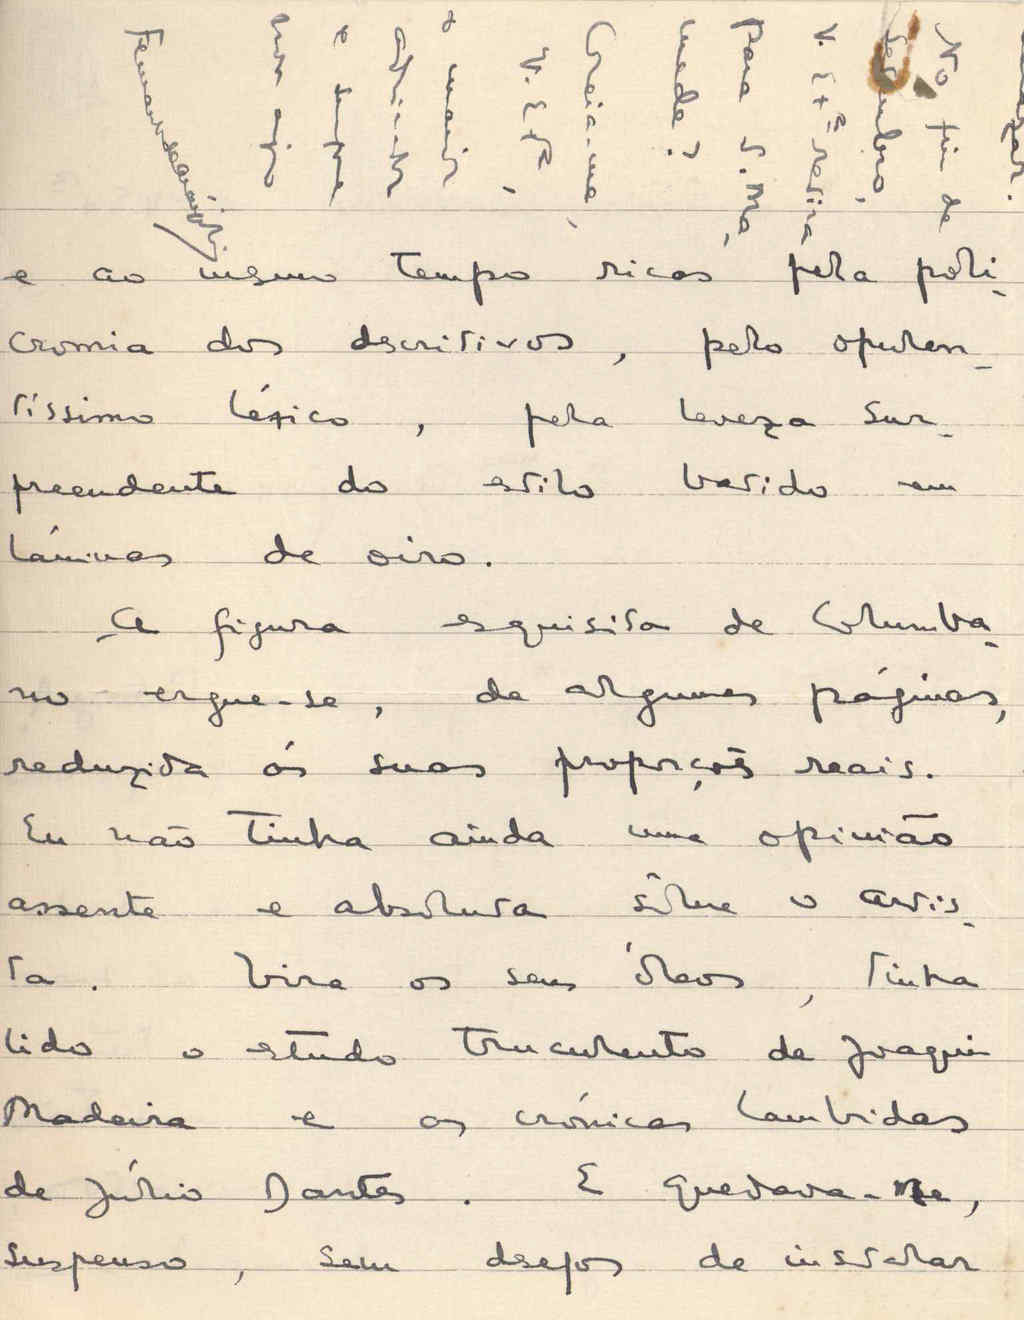 No fim de
Setembro,
V. Ex.ª retira
Para S. Ma-
mede?
Creia-me,
V. Ex.ª,
o maior
e sempre
e ao mesmo tempo ricas pela poli-
cromia dos descritivos, pelo opulen-
tíssimo léxico, pela leveza sur-
preendente do estilo batido em
lâminas de oiro.
A figura esquisita de Columba-
no ergue-se, de algumas páginas,
reduzida ás suas proporções reais.
Eu não tinha ainda uma opinião
assente e absoluta sôbre o artis-
ta. Vira os seus óleos, tinha
lido o estudo truculento de Joaquim
Madeira e as crónicas lambidas
de Júlio Dantas. E quedava-me,
suspenso, sem desejos de instalar